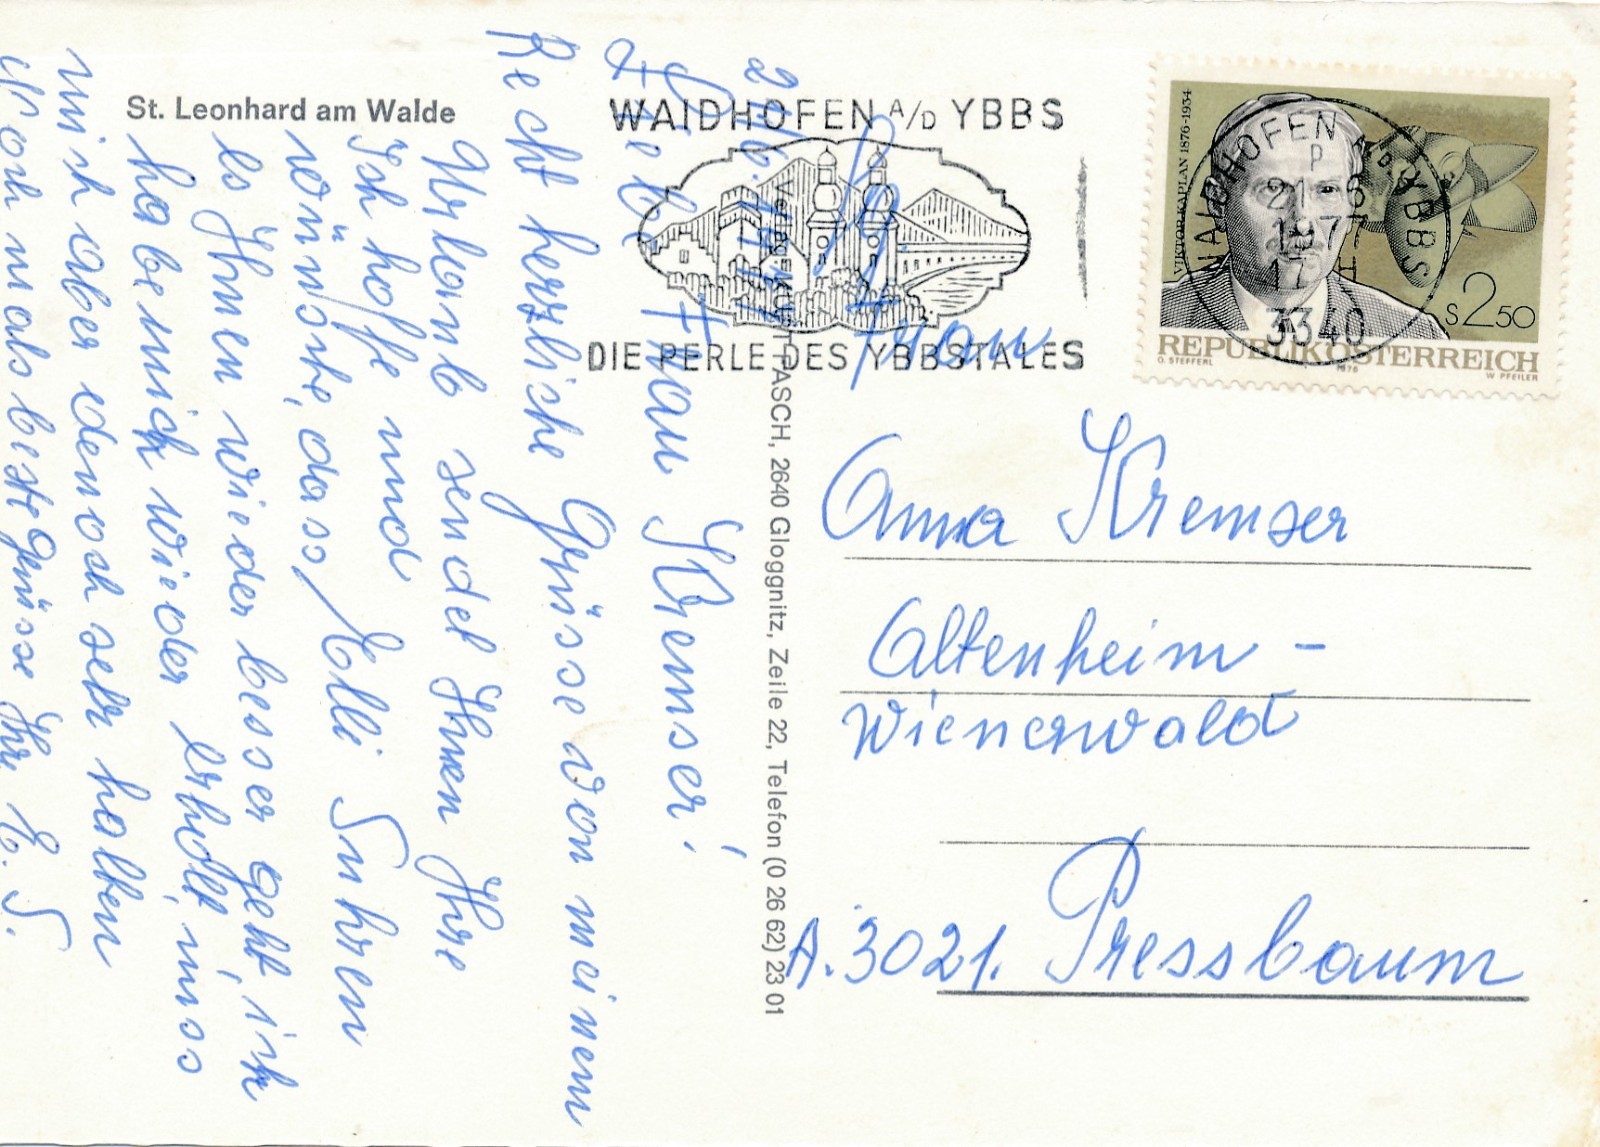 St. Leonhard am Walde
WAIDHOFEN A/D YBBS
DIE PERLE DES YBBSTALES
VIKTOR KAPLAN 1876-1934
WAIDHOFEN A.D. YBBS
3340
S 2.50
REPUBLIK ÖSTERREICH
O. STEFFERL 1976 W. PFEILER
Liebe Frau Kremser!
Recht herzliche Grüsse von meinem
Urlaub sendet Ihnen Ihre
Elli Suhren
Ich hoffe und
wünsche, dass
es Ihnen wieder besser geht, ich
habe mich wieder erholt, muss
mich aber denoch sehr halten
Nochmals beste Grüsse Ihre E. S.
PASCH, 2640 Gloggnitz, Zeile 22, Telefon (0 26 62) 23 01
Frau
Anna Kremser
Altenheim -
Wienerwald
A. 3021. Pressbaum